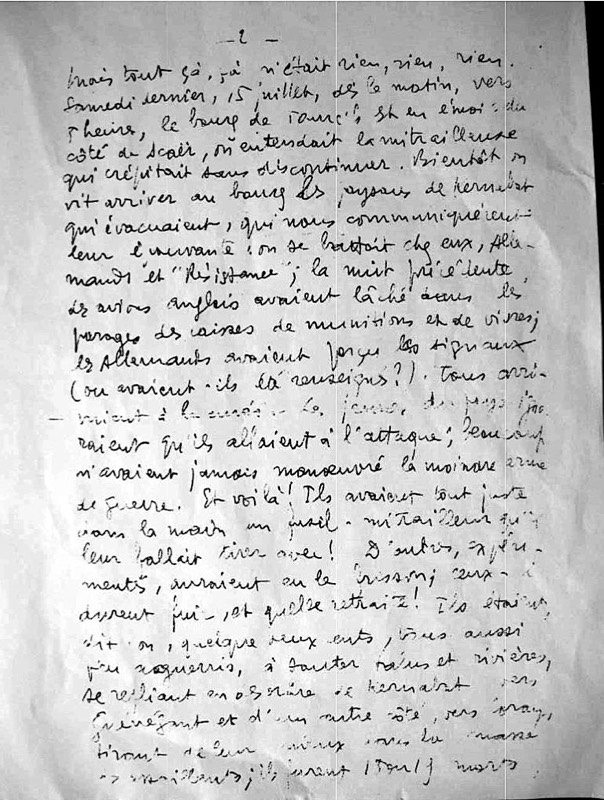 — 2 —
Mais tout ça, ça n'était rien, rien, rien.
Samedi dernier, 15 juillet, dès le matin, vers
5 heures, le bourg de est en émoi : du
côté de Scaër, on entendait la mitrailleuse
qui crépitait sans discontinuer. Bientôt on
vit arriver au bourg les paysans de Kernabat
qui évacuaient, qui nous communiquèrent
leur épouvante : on se battait chez eux, Alle-
mands et "Résistance" ; la nuit précédente,
des avions anglais avaient lâché dans les
parages des caisses de munitions et de vivres ;
les Allemands avaient perçu les signaux
(ou avaient-ils été renseignés ?). Tous arri-
vaient à la Les jeunes du pays
raient qu'ils allaient à l'attaque ; beaucoup
n'avaient jamais manœuvré la moindre arme
de guerre. Et voilà ! Ils avaient tout juste
dans la main un fusil-mitrailleur qu'il
leur fallait tirer avec ! D'autres, expéri-
mentés, auraient eu le frisson ; ceux-ci
durent fuir, et quelle retraite ! Ils étaient,
dit-on, quelque deux cents, tous aussi
peu aguerris, à sauter talus et rivières,
se repliant en de Kernabat vers
et d'un autre côté, vers
tirant de leur mieux dans la masse
des assaillants ; ils furent 15 morts